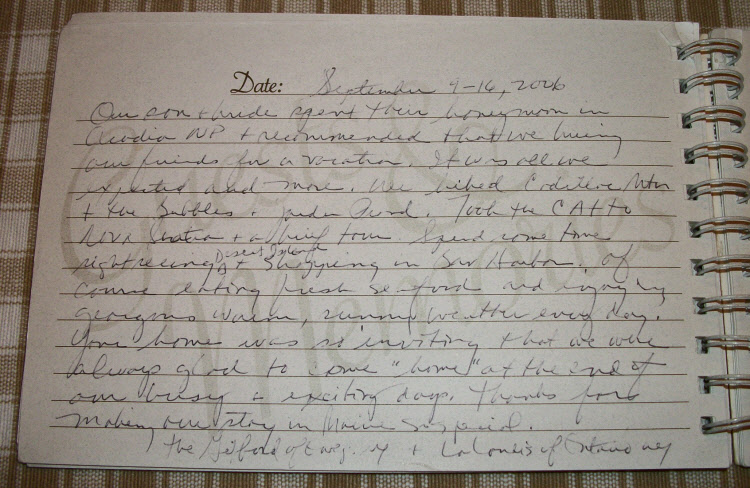 Date: September 9-16, 2006
Our son + bride spent their honeymoon in
Acadia NP + recommended that we bring
our friends for a vacation. It was all we
expected and more. We hiked Cadillac Mtn
+ the Bubbles + Jordan Pond. Took the CAT to
Nova Scotia + a brief tour. Spend some time
Desert Island
sightseeing + shopping in Bar Harbor, of
course eating fresh seafood and enjoying
gorgeous warm, sunny weather every day.
Your home was so inviting + that we were
always glad to come "home" at the end of
our busy + exciting days. Thanks for
making our stay in Maine so special.
The of + of
Guests & Memories